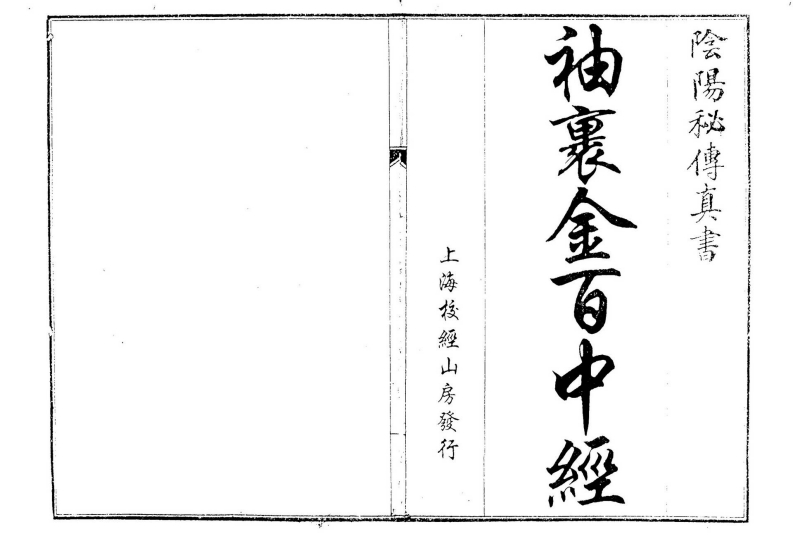 陰陽秘傳真書
袖裏金百中經
上海校經山房發行